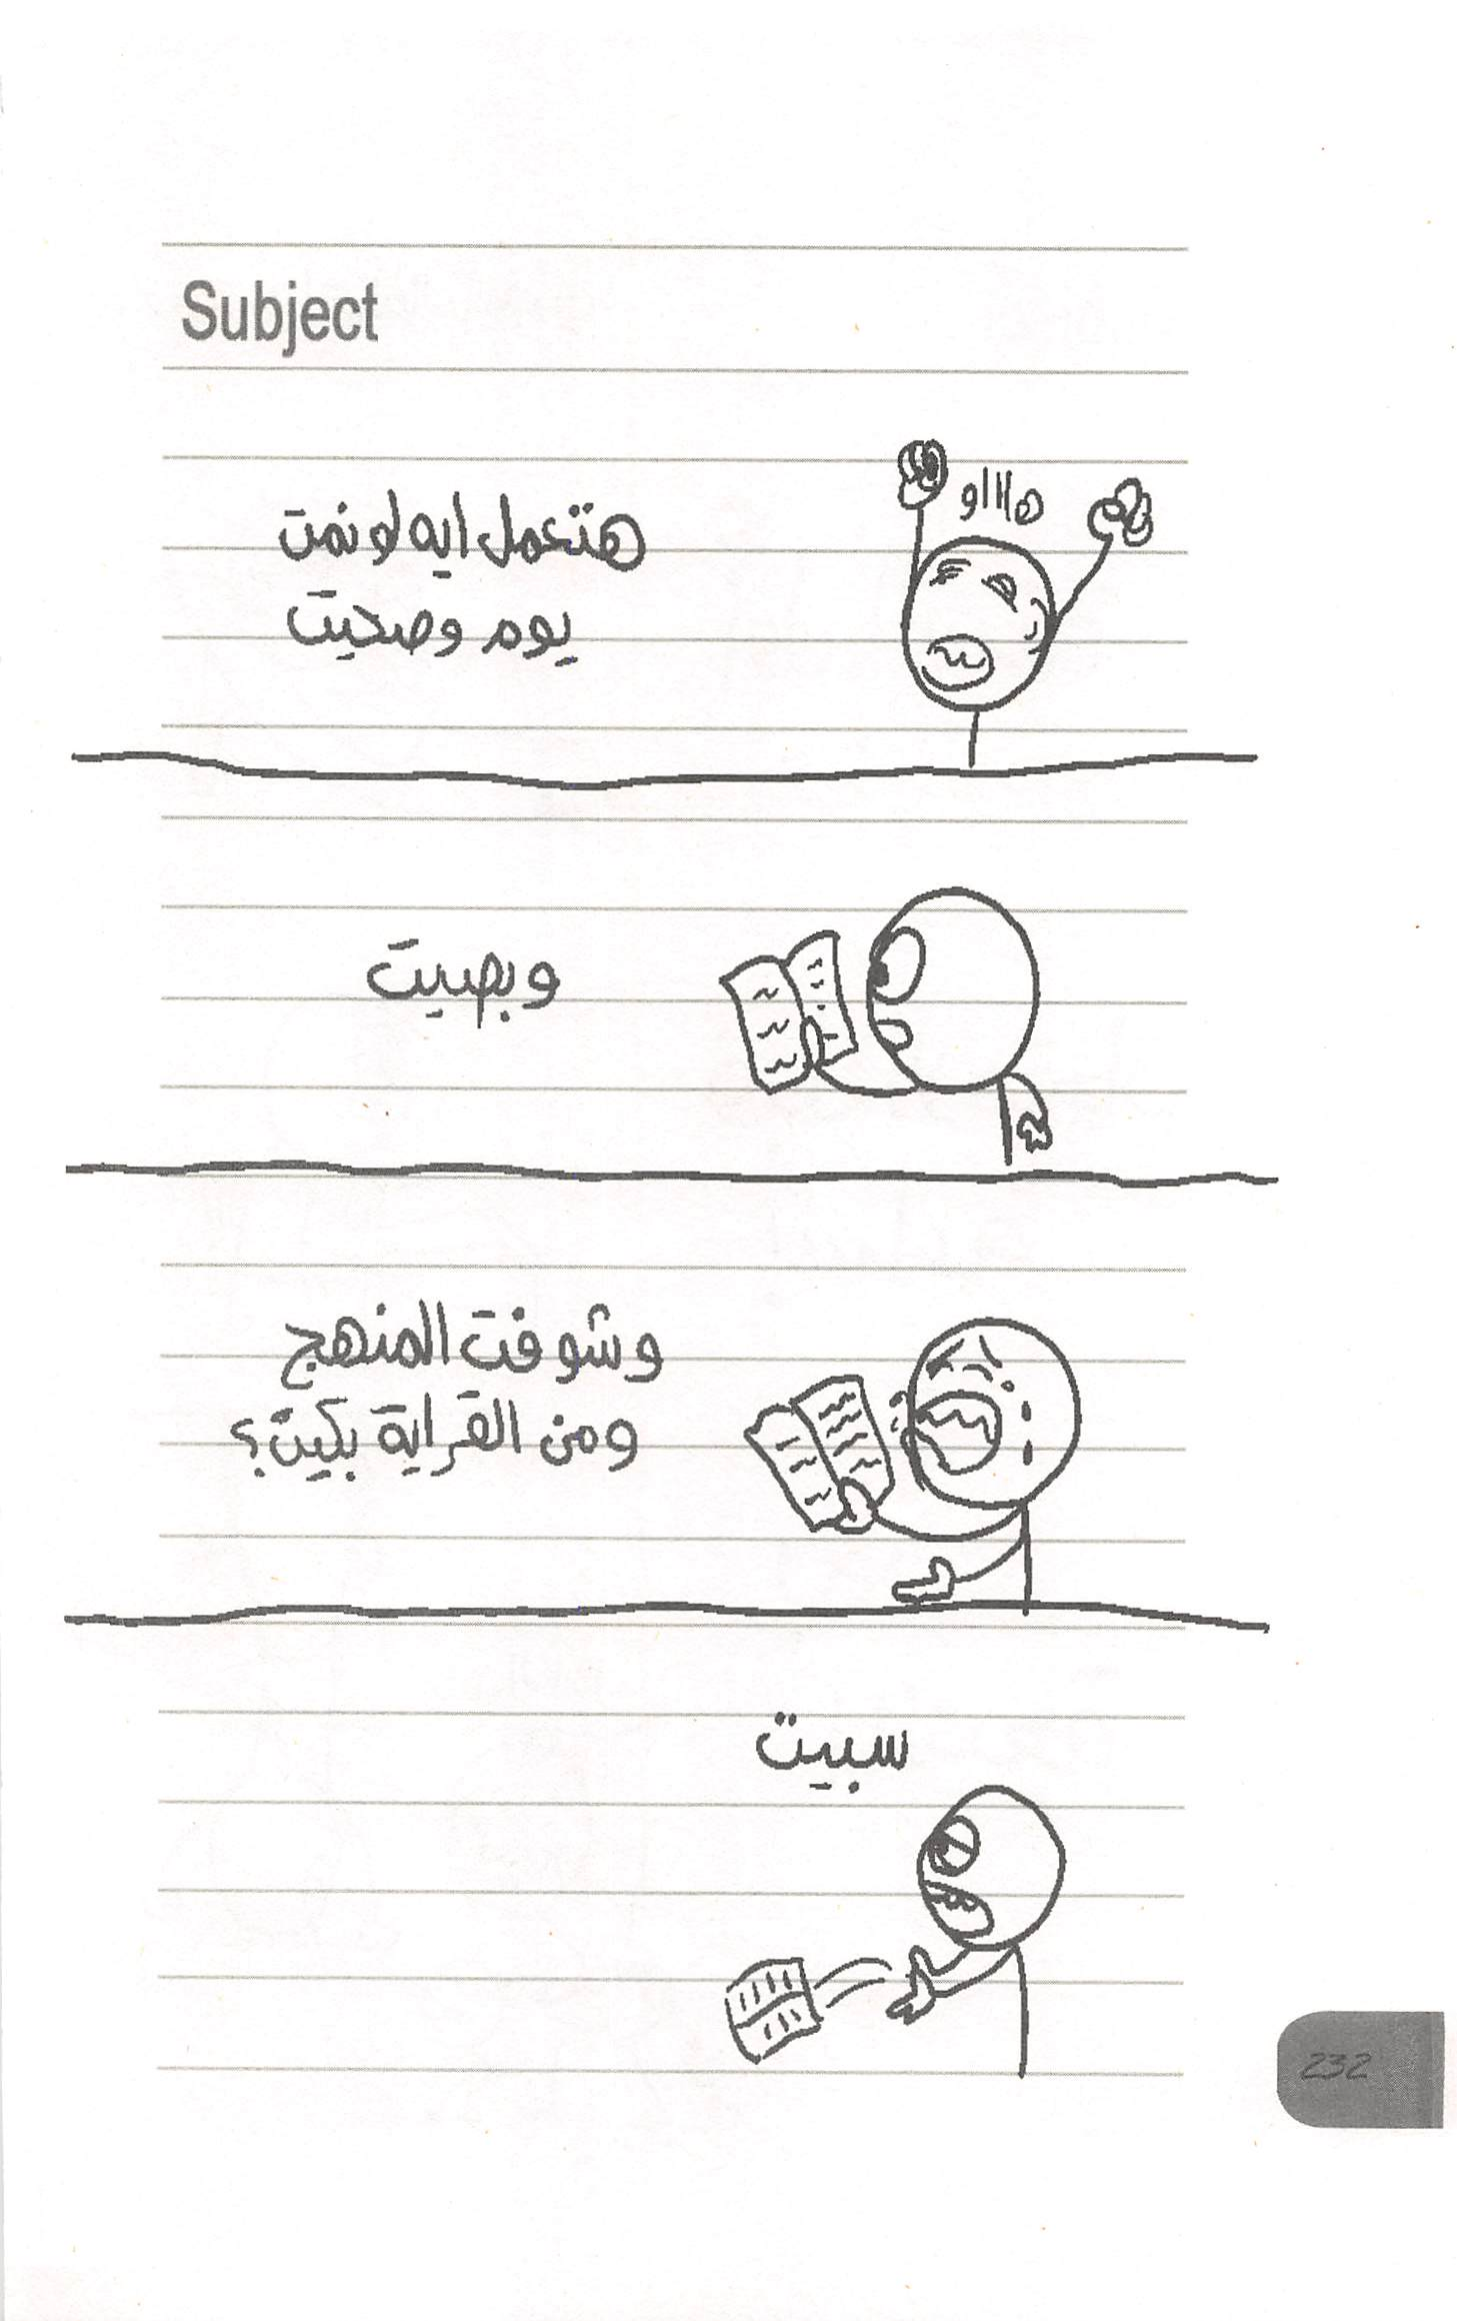 Subject
هاااو
هتعمل ايه لو نمت
يوم وصحيت
وبصيت
وشوفت المنهج
ومن القراية بكيت؟
سبيت
232